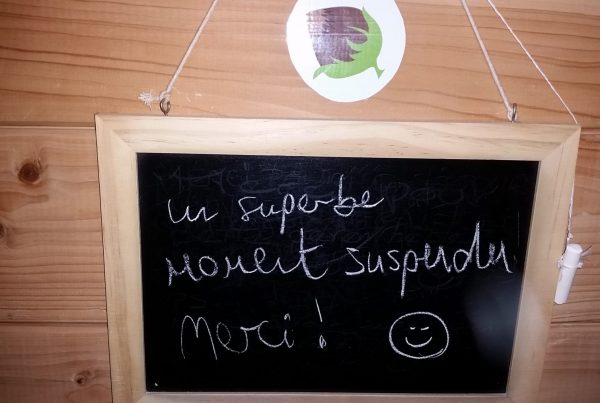 un superbe
moment suspendu
Merci !